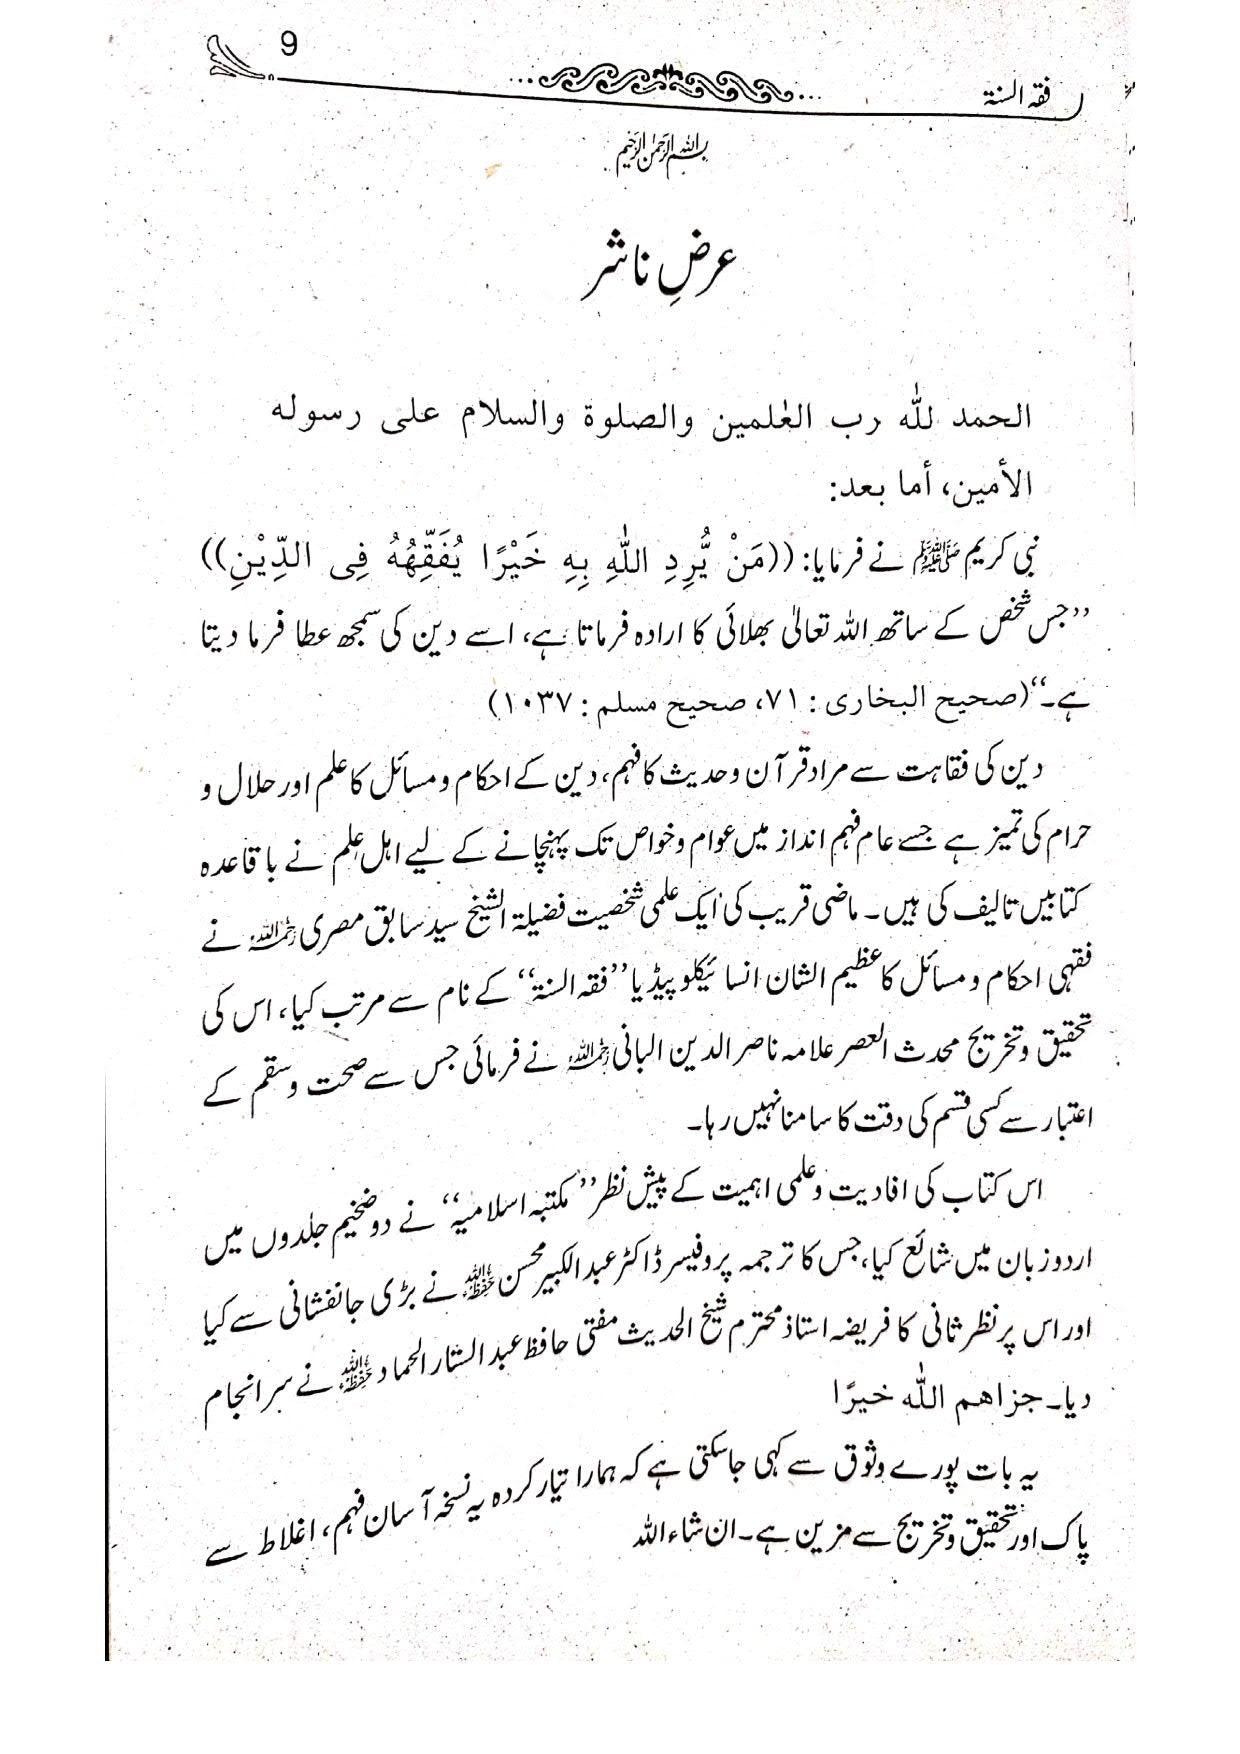 9
فقہ السنۃ
بسم اللہ الرحمٰن الرحیم
عرضِ ناشر
الحمد للّٰہ رب العٰلمین والصلوة والسلام علی رسولہ
الأمین، أما بعد:
نبی کریم ﷺ نے فرمایا: ((مَنْ یُّرِدِ اللّٰہُ بِہِ خَیْرًا یُفَقِّھْہُ فِی الدِّیْنِ))
’’جس شخص کے ساتھ اللہ تعالیٰ بھلائی کا ارادہ فرماتا ہے، اسے دین کی سمجھ عطا فرما دیتا
ہے۔‘‘ (صحیح البخاری : ۷۱، صحیح مسلم : ۱۰۳۷)
دین کی فقاہت سے مراد قرآن و حدیث کا فہم، دین کے احکام و مسائل کا علم اور حلال و
حرام کی تمیز ہے جسے عام فہم انداز میں عوام و خواص تک پہنچانے کے لیے اہل علم نے باقاعدہ
کتابیں تالیف کی ہیں۔ ماضی قریب کی ایک علمی شخصیت فضیلۃ الشیخ سید سابق مصری رحمہ اللہ نے
فقہی احکام و مسائل کا عظیم الشان انسائیکلوپیڈیا ’’فقہ السنۃ‘‘ کے نام سے مرتب کیا، اس کی
تحقیق و تخریج محدث العصر علامہ ناصر الدین البانی رحمہ اللہ نے فرمائی جس سے صحت و سقم کے
اعتبار سے کسی قسم کی دقت کا سامنا نہیں رہا۔
اس کتاب کی افادیت و علمی اہمیت کے پیش نظر ’’مکتبہ اسلامیہ‘‘ نے دو ضخیم جلدوں میں
اردو زبان میں شائع کیا، جس کا ترجمہ پروفیسر ڈاکٹر عبدالکبیر محسن حفظہ اللہ نے بڑی جانفشانی سے کیا
اور اس پر نظر ثانی کا فریضہ استاذ محترم شیخ الحدیث مفتی حافظ عبدالستار الحماد حفظہ اللہ نے سر انجام
دیا۔ جزاھم اللّٰہ خیرًا
یہ بات پورے وثوق سے کہی جاسکتی ہے کہ ہمارا تیار کردہ یہ نسخہ آسان فہم، اغلاط سے
پاک اور تحقیق و تخریج سے مزین ہے۔ ان شاء اللہ